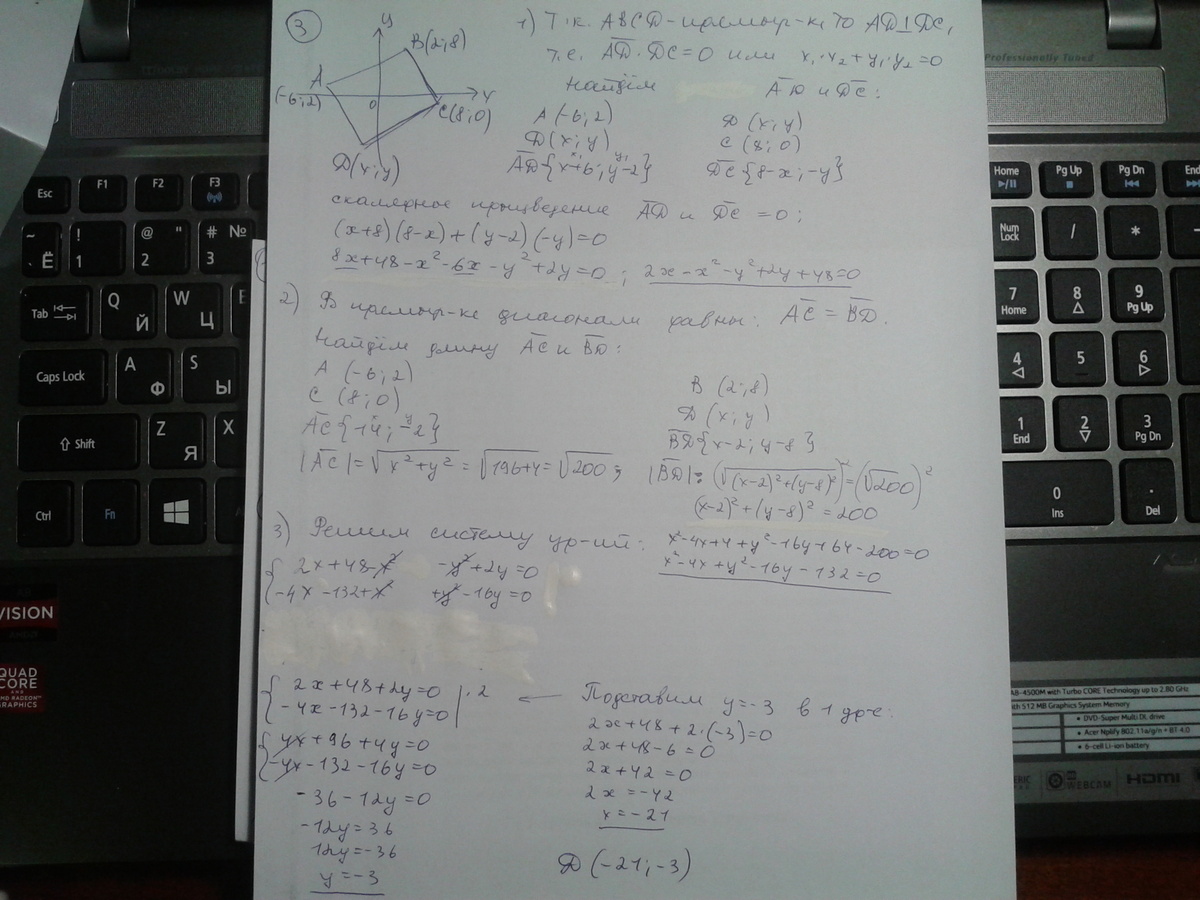 3
y
B(2;8)
A
(-6;2)
0
x
C(8;0)
D(x;y)
1) Т.к. ABCD-прямоуг-к, то AD⊥DC,
т.е. AD·DC=0 или x₁·x₂+y₁·y₂=0
Найдём AD и DC:
A (-6;2)
D(x;y)
AD{x+6; y-2}
D (x;y)
C (8;0)
DC{8-x;-y}
скалярное произведение AD и DC =0;
(x+8)(8-x)+(y-2)(-y)=0
8x+48-x²-6x-y²+2y=0; 2x-x²-y²+2y+48=0
2) В прямоуг-ке диагонали равны: AC=BD.
Найдём длину AC и BD:
A (-6;2)
C (8;0)
AC{14;-2}
|AC|=√x²+y²=√196+4=√200;
B (2;8)
D (x;y)
BD{x-2; y-8}
|BD|:(√(x-2)²+(y-8)²)²=(√200)²
(x-2)²+(y-8)²=200
x²-4x+4+y²-16y+64-200=0
x²-4x+y²-16y-132=0
3) Решим систему ур-ий:
2x+48-x² -y²+2y=0
-4x-132+x² +y²-16y=0
2x+48+2y=0 |·2
-4x-132-16y=0
4x+96+4y=0
-4x-132-16y=0
-36-12y=0
-12y=36
12y=-36
y=-3
← Подставим y=-3 в 1 ур-е:
2x+48+2·(-3)=0
2x+48-6=0
2x+42=0
2x=-42
x=-21
D (-21;-3)
Esc
F1
F2
F3
~ Ё
! 1
@ " 2
# № 3
Tab
Q Й
W Ц
E
Caps Lock
A Ф
S Ы
Shift
Z Я
X
Ctrl
Fn
Alt
VISION
AMD
QUAD
CORE
AMD RADEON
GRAPHICS
Professionally Tuned
Home
Pg Up
Pg Dn
End
Num
Lock
/
*
-
7
Home
8
9
Pg Up
4
5
6
1
End
2
3
Pg Dn
0
Ins
.
Del
A8-4500M with Turbo CORE Technology up to 2.80 GHz
with 512 MB Graphics System Memory
• DVD-Super Multi DL drive
• Acer Nplify 802.11a/g/n + BT 4.0
• 6-cell Li-ion battery
WEBCAM
HDMI